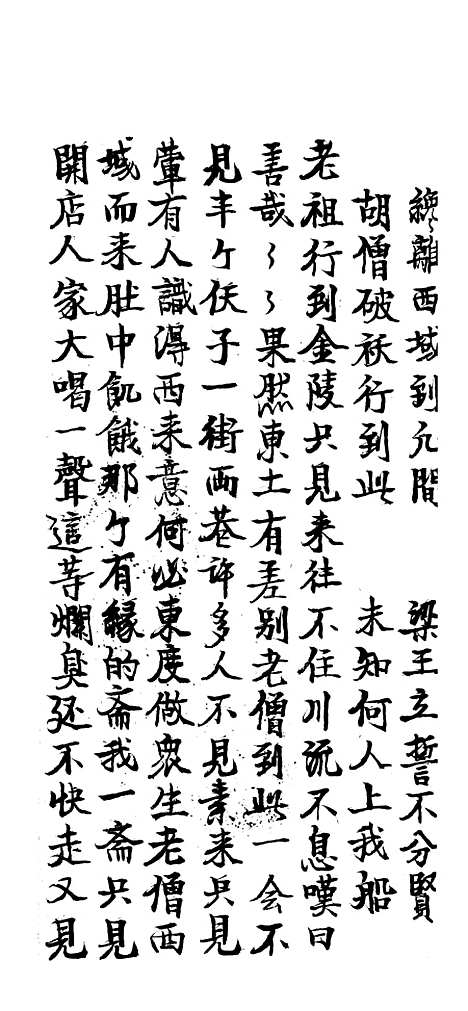 纔離西域到凡間　梁王立誓不分賢
胡僧破衲行到此　未知何人上我船
老祖行到金陵只見来往不住川流不息嘆曰
善哉〻〻果然東土有差别老僧到此一会不
見丰个伕子一街両巷許多人不見素来只見
葷有人識得西来意何必東度做衆生老僧西
域而来肚中飢餓那个有緣的斋我一斋只見
開店人家大喝一聲這等爛臭还不快走又見